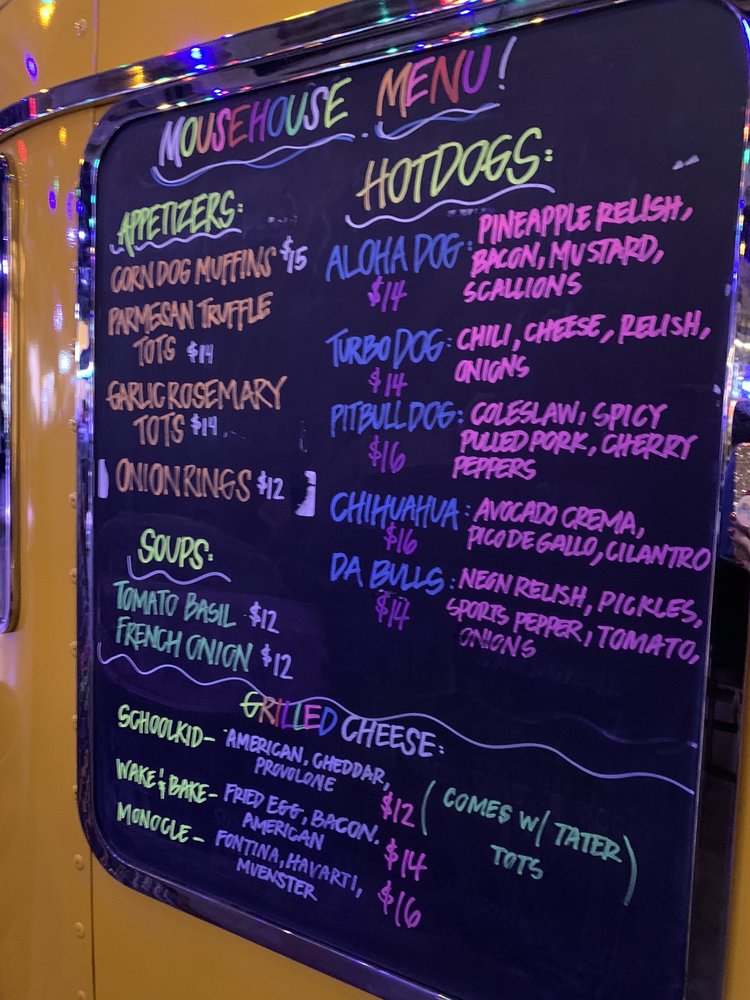 MOUSEHOUSE MENU!
APPETIZERS:
CORN DOG MUFFINS $15
PARMESAN TRUFFLE
TOTS $14
GARLIC ROSEMARY
TOTS $14
ONION RINGS $12
SOUPS:
TOMATO BASIL $12
FRENCH ONION $12
HOTDOGS:
ALOHA DOG: PINEAPPLE RELISH,
$14 BACON, MUSTARD,
SCALLIONS
TURBO DOG: CHILI, CHEESE, RELISH,
$14 ONIONS
PITBULL DOG: COLESLAW, SPICY
$16 PULLED PORK, CHERRY
PEPPERS
CHIHUAHUA: AVOCADO CREMA,
$16 PICO DE GALLO, CILANTRO
DA BULLS: NEON RELISH, PICKLES,
$14 SPORTS PEPPER, TOMATO,
ONIONS
GRILLED CHEESE:
SCHOOLKID- AMERICAN, CHEDDAR,
PROVOLONE $12
WAKE & BAKE- FRIED EGG, BACON,
AMERICAN $14
MONOCLE- FONTINA, HAVARTI,
MUENSTER $16
(COMES W/ TATER
TOTS)